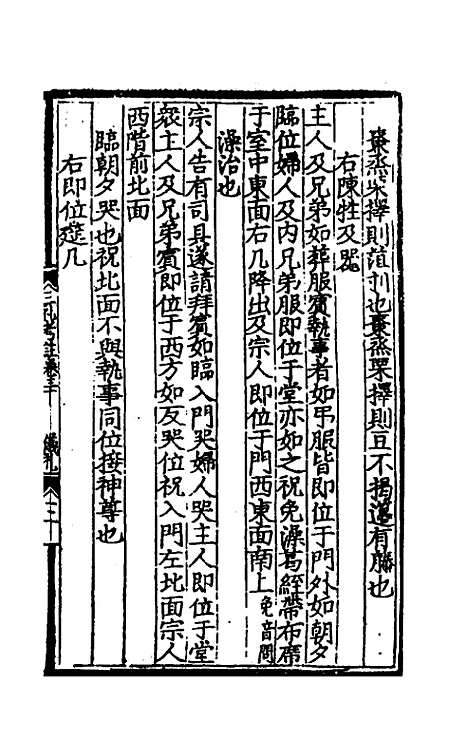 棗烝栗擇則菹刌也棗烝栗擇則豆不揭籩有籐也
右陳牲及器
主人及兄弟如葬服賓執事者如弔服皆即位于門外如朝夕
臨位婦人及內兄弟服即位于堂亦如之祝免澡葛絰帶布席
于室中東面右几降出及宗人即位于門西東面南上免音問
澡治也
宗人告有司具遂請拜賓如臨入門哭婦人哭主人即位于堂
衆主人及兄弟賓即位于西方如反哭位祝入門左北面宗人
西階前北面
臨朝夕哭也祝北面不與執事同位接神尊也
右即位筵几
三礼考註卷三十 儀礼 三